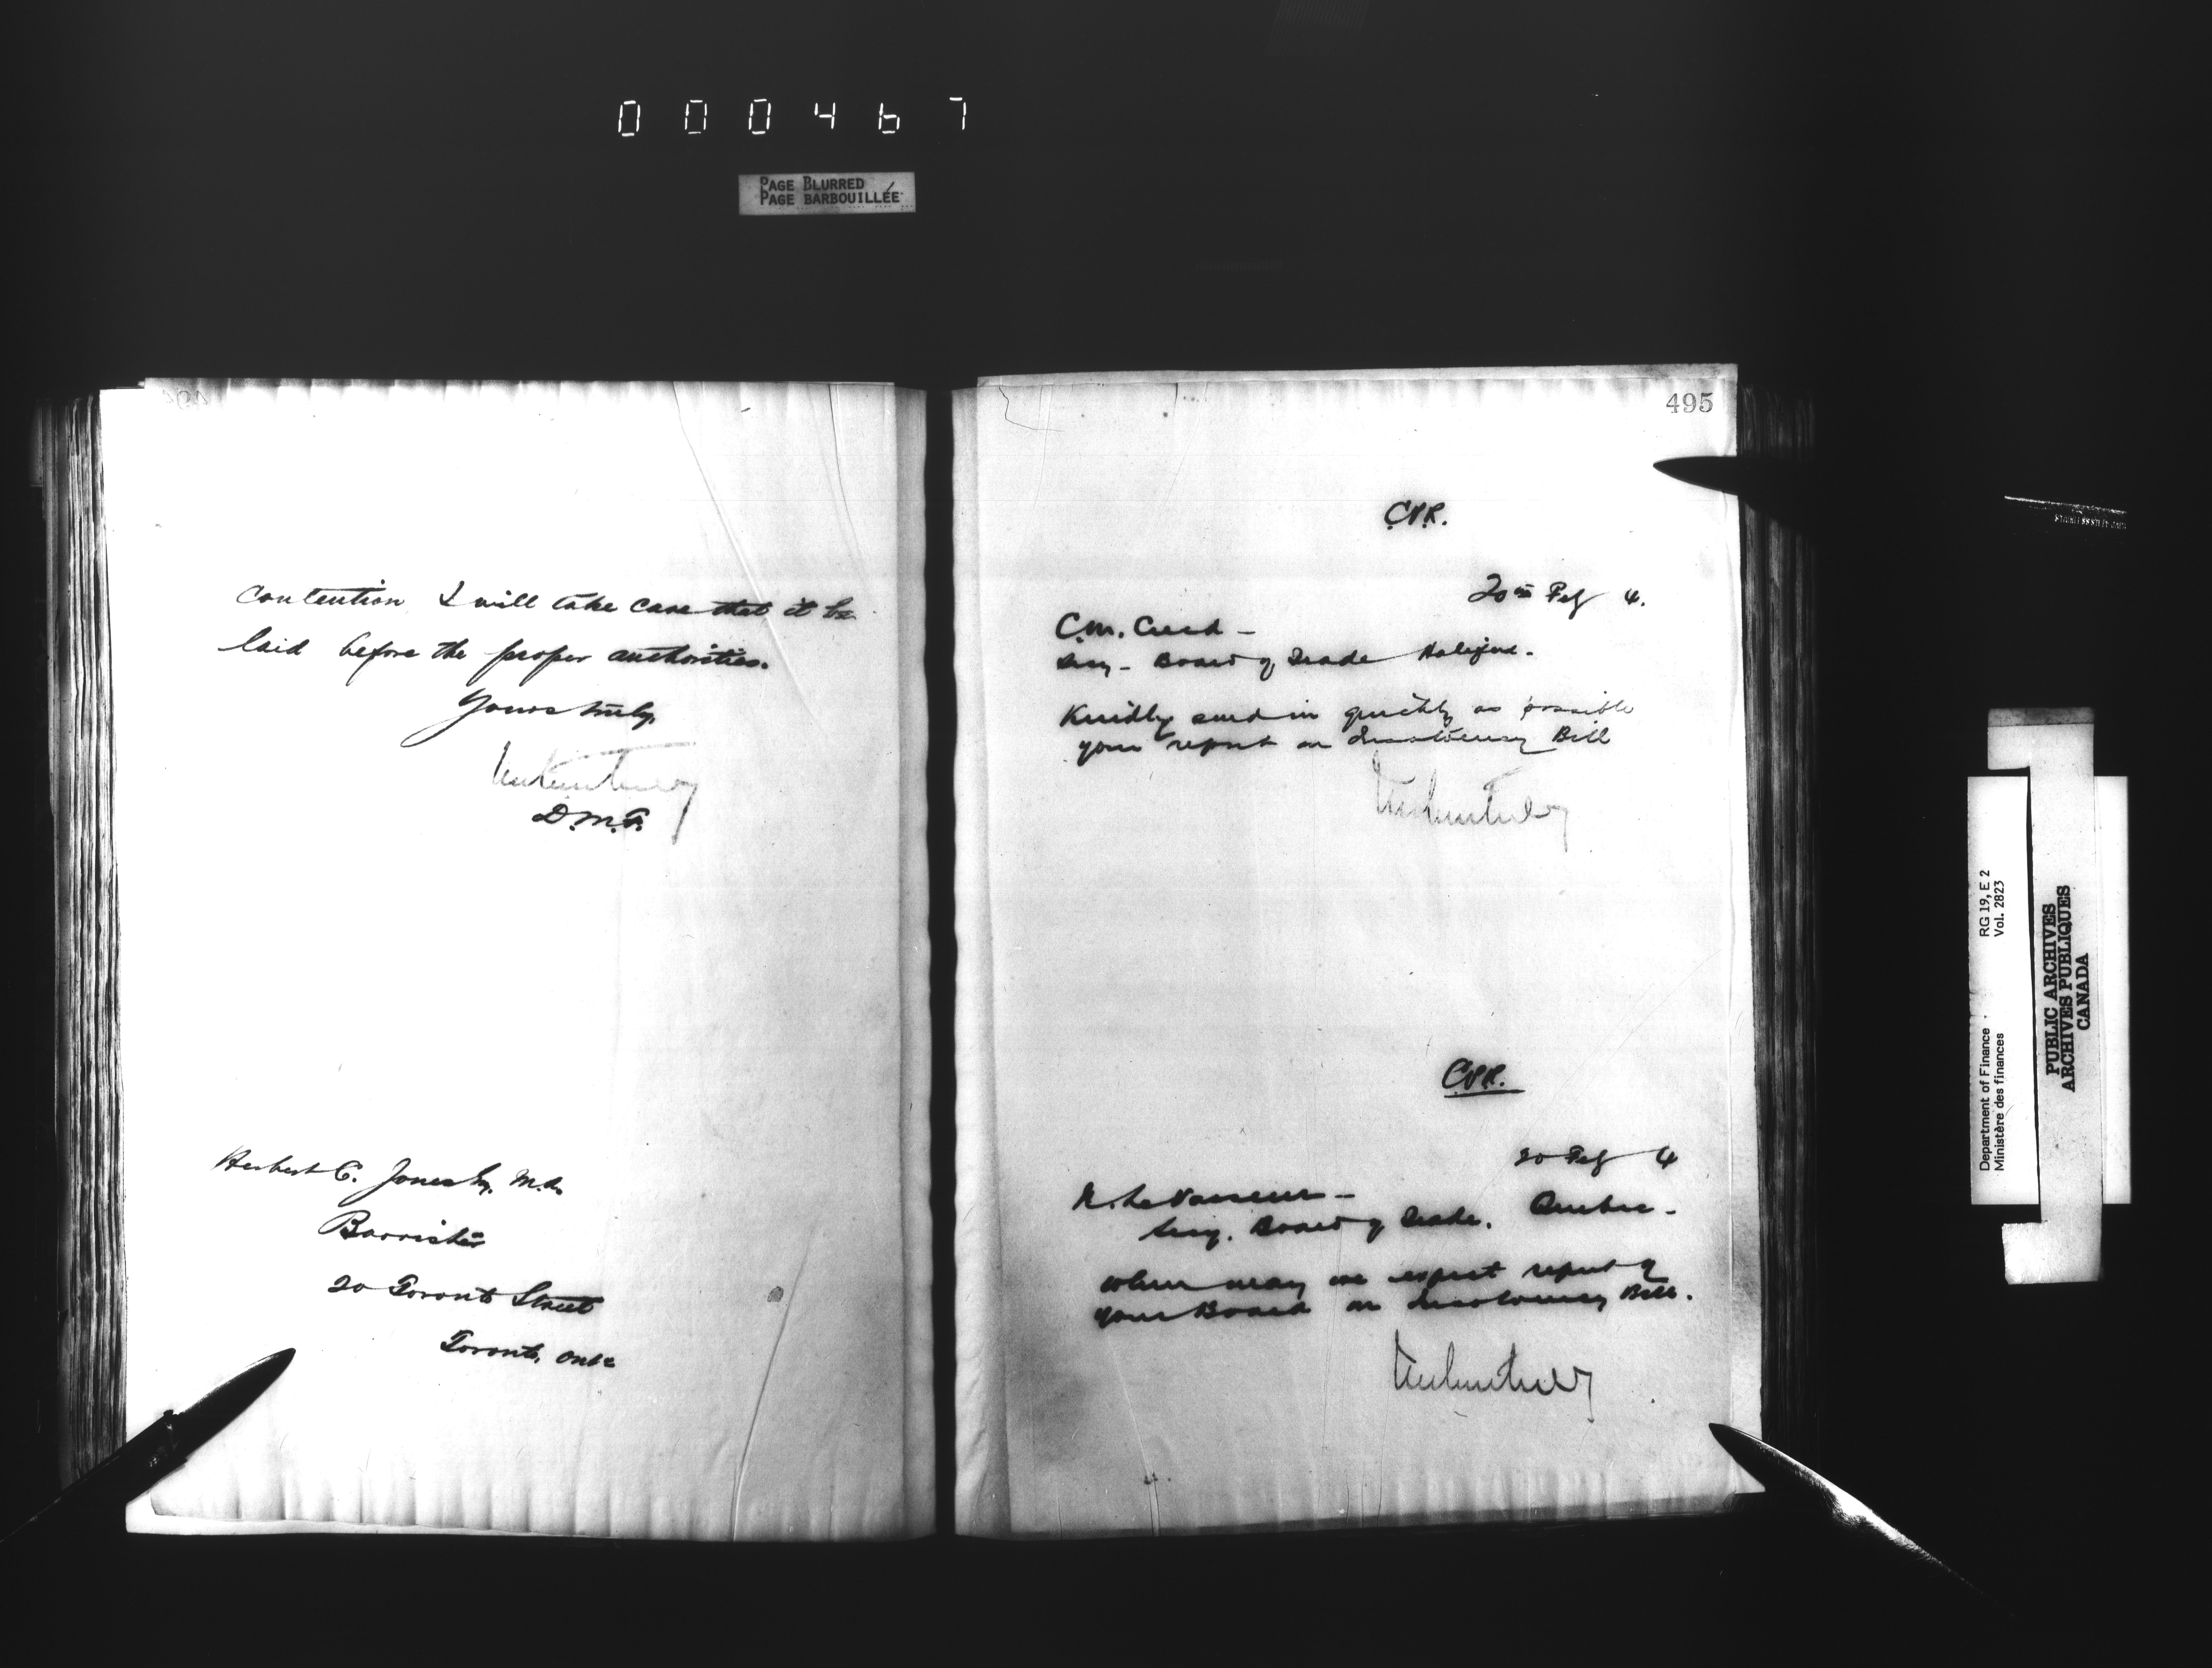 000467
PAGE BLURRED
PAGE BARBOUILLÉE
contention I will take care that it be
laid before the proper authorities.
Yours truly,
D.M.F.
Herbert C. Jones Esq. M.A.
Barrister
20 Toronto Street
Toronto, Ont.
495
C.P.R.
20th Feb 4.
C.M. Creed -
Secy - Board of Trade Halifax.
Kindly send in quickly as possible
your report on Insolvency Bill
C.P.R.
20 Feb 4
LeVasseur -
Secy. Board of Trade. Quebec -
When may we expect report of
your Board on Insolvency Bill.
Department of Finance RG 19, E 2
Ministère des finances Vol. 2823
PUBLIC ARCHIVES
ARCHIVES PUBLIQUES
CANADA